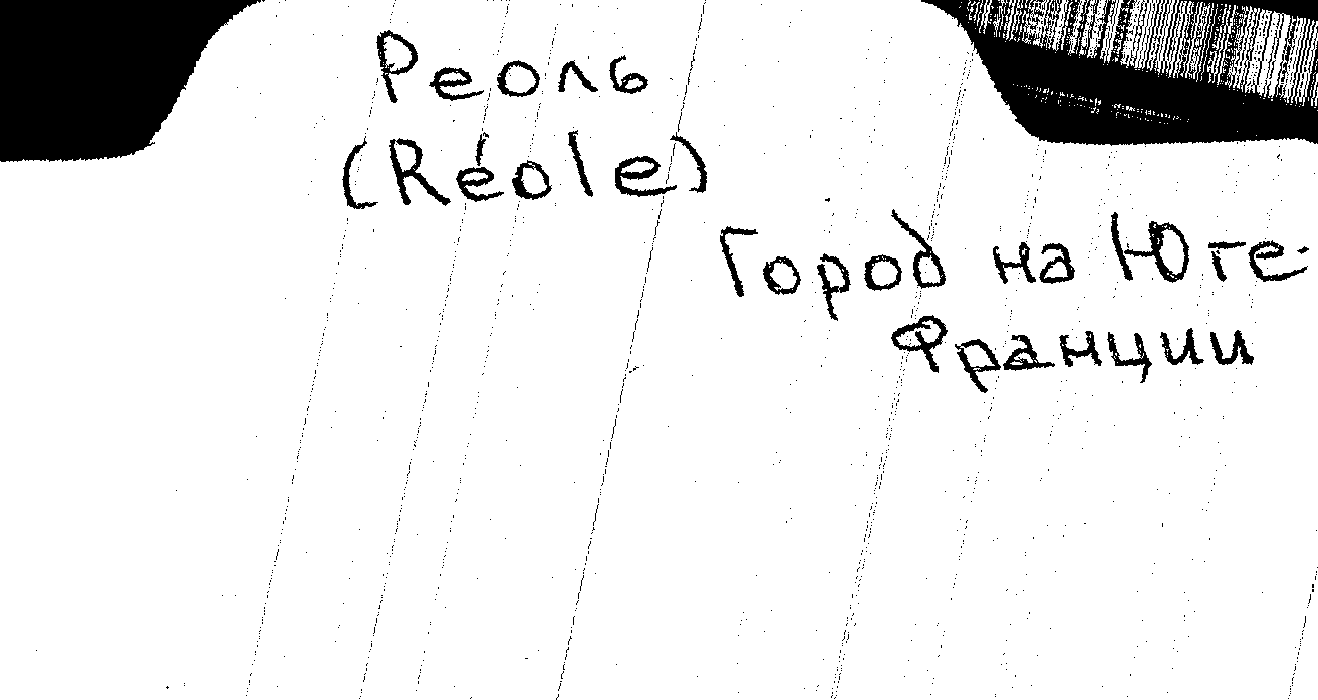 Реоль
(Réole)
Город на Юге
Франции